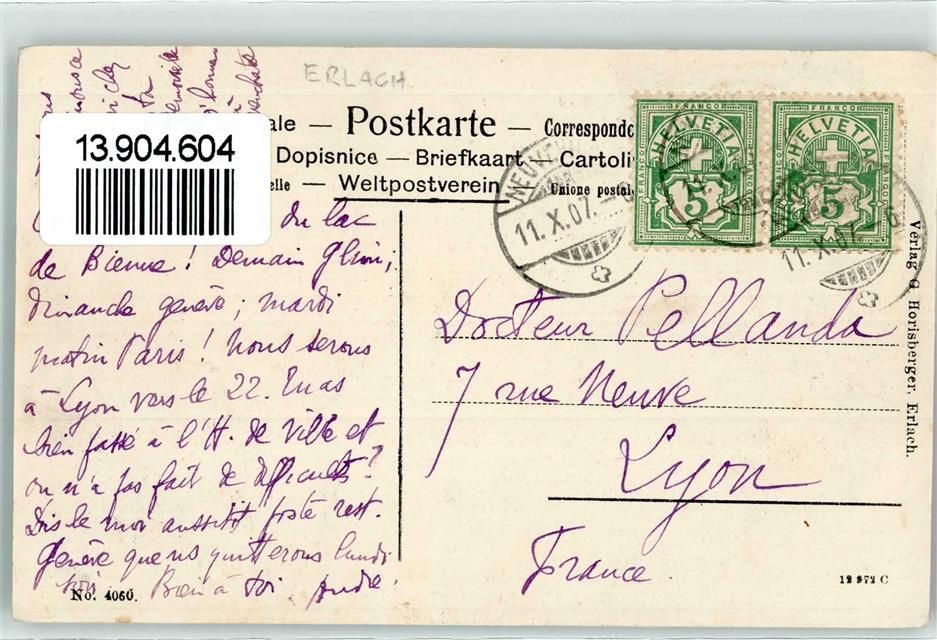 ERLACH
Postkarte — Correspondc
Dopisnice — Briefkaart — Cartoli
Weltpostverein Unione postal
13.904.604
HELVETIA HELVETIA
FRANCO FRANCO
5 5
11.X.07.
11.X.07.
du lac
de Bienne ! Demain Glion,
Dimanche genève ; mardi
matin Paris ! Nous serons
à Lyon vers le 22. Tu as
bien passé à l'H. de Ville et
on n'a pas fait de difficultés ?
Dis le moi aussitôt poste rest.
Genève que ns quitterons lundi
soir. Bien à toi. André.
Docteur Pellanda
7 rue Neuve
Lyon
France.
Verlag G. Horisberger, Erlach.
No. 4060.
12 972 C